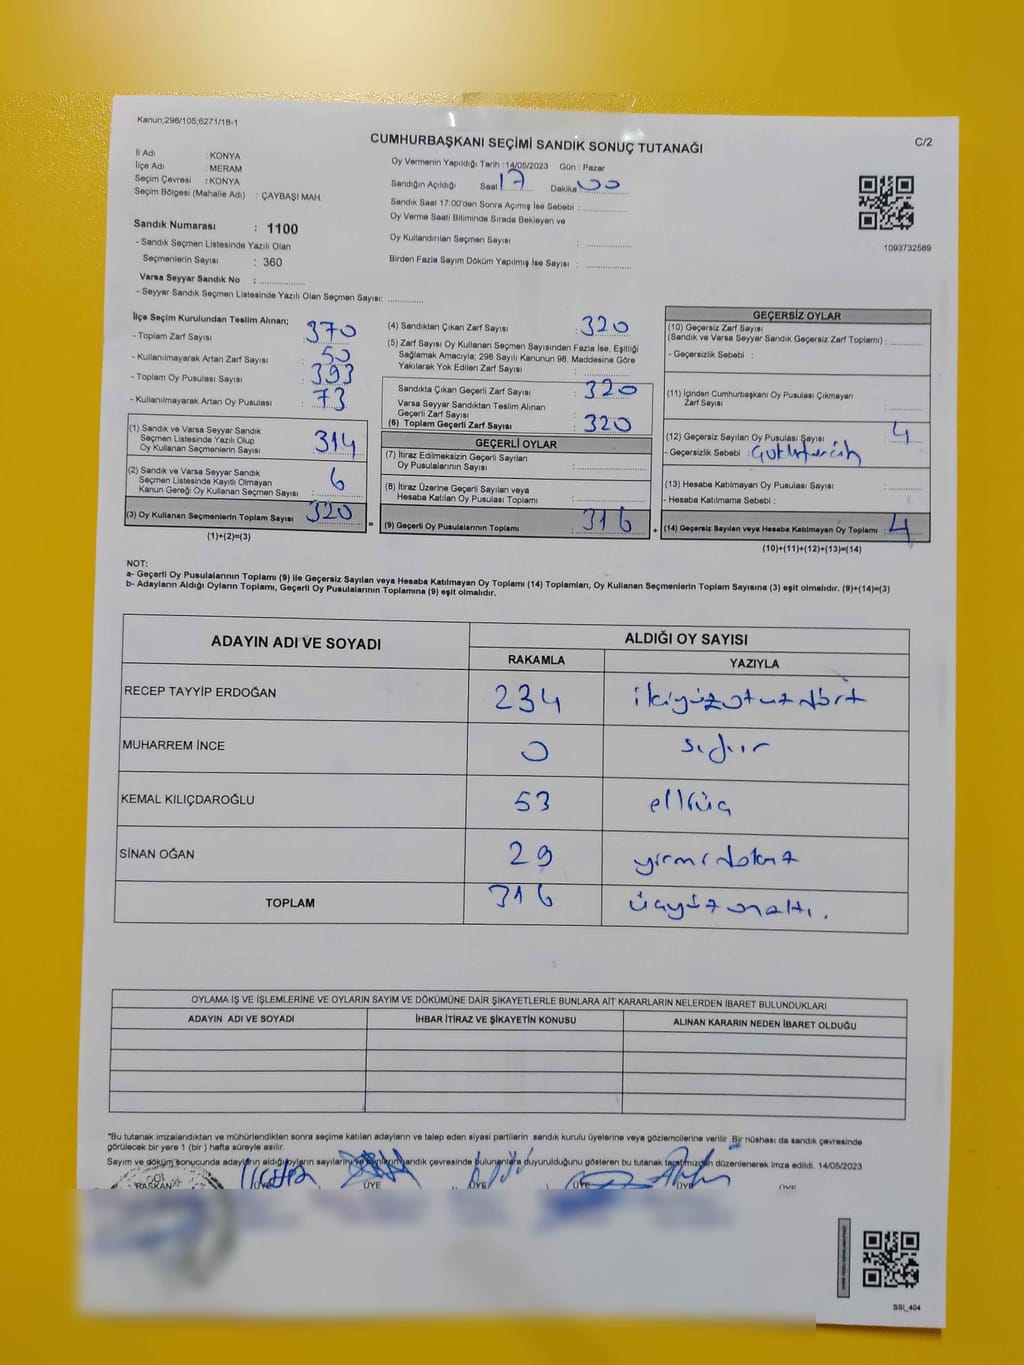 Kanun;298/105;6271/18-1
CUMHURBAŞKANI SEÇİMİ SANDIK SONUÇ TUTANAĞI
C/2
İl Adı : KONYA
İlçe Adı : MERAM
Seçim Çevresi : KONYA
Seçim Bölgesi (Mahalle Adı) : ÇAYBAŞI MAH.
Sandık Numarası : 1100
- Sandık Seçmen Listesinde Yazılı Olan
Seçmenlerin Sayısı : 360
Varsa Seyyar Sandık No : ..................
- Seyyar Sandık Seçmen Listesinde Yazılı Olan Seçmen Sayısı: .............
Oy Vermenin Yapıldığı Tarih : 14/05/2023 Gün : Pazar
Sandığın Açıldığı Saat 17 Dakika 00
Sandık Saat 17:00'den Sonra Açımış İse Sebebi : ................
Oy Verme Saati Bitiminde Sırada Bekleyen ve
Oy Kullandırılan Seçmen Sayısı : ................
Birden Fazla Sayım Döküm Yapılmış İse Sayısı : ................
1093732569
İlçe Seçim Kurulundan Teslim Alınan;
- Toplam Zarf Sayısı : 370
- Kullanılmayarak Artan Zarf Sayısı : 50
- Toplam Oy Pusulası Sayısı : 393
- Kullanılmayarak Artan Oy Pusulası : 73
(1) Sandık ve Varsa Seyyar Sandık
Seçmen Listesinde Yazılı Olup
Oy Kullanan Seçmenlerin Sayısı : 314
(2) Sandık ve Varsa Seyyar Sandık
Seçmen Listesinde Kayıtlı Olmayan
Kanun Gereği Oy Kullanan Seçmen Sayısı : 6
(3) Oy Kullanan Seçmenlerin Toplam Sayısı : 320
(1)+(2)=(3)
=
(4) Sandıktan Çıkan Zarf Sayısı : 320
(5) Zarf Sayısı Oy Kullanan Seçmen Sayısından Fazla İse, Eşitliği
Sağlamak Amacıyla; 298 Sayılı Kanunun 98. Maddesine Göre
Yakılarak Yok Edilen Zarf Sayısı : ................
Sandıkta Çıkan Geçerli Zarf Sayısı : 320
Varsa Seyyar Sandıktan Teslim Alınan
Geçerli Zarf Sayısı
(6) Toplam Geçerli Zarf Sayısı : 320
GEÇERLİ OYLAR
(7) İtiraz Edilmeksizin Geçerli Sayılan
Oy Pusulalarının Sayısı : ................
(8) İtiraz Üzerine Geçerli Sayılan veya
Hesaba Katılan Oy Pusulası Toplamı : ................
(9) Geçerli Oy Pusulalarının Toplamı : 316
+
GEÇERSİZ OYLAR
(10) Geçersiz Zarf Sayısı
(Sandık ve Varsa Seyyar Sandık Geçersiz Zarf Toplamı) : .........
- Geçersizlik Sebebi :
(11) İçinden Cumhurbaşkanı Oy Pusulası Çıkmayan
Zarf Sayısı : .........
(12) Geçersiz Sayılan Oy Pusulası Sayısı : 4
- Geçersizlik Sebebi :
(13) Hesaba Katılmayan Oy Pusulası Sayısı : .........
- Hesaba Katılmama Sebebi :
(14) Geçersiz Sayılan veya Hesaba Katılmayan Oy Toplamı : 4
(10)+(11)+(12)+(13)=(14)
NOT:
a- Geçerli Oy Pusulalarının Toplamı (9) ile Geçersiz Sayılan veya Hesaba Katılmayan Oy Toplamı (14) Toplamları, Oy Kullanan Seçmenlerin Toplam Sayısına (3) eşit olmalıdır. (9)+(14)=(3)
b- Adayların Aldığı Oyların Toplamı, Geçerli Oy Pusulalarının Toplamına (9) eşit olmalıdır.
ADAYIN ADI VE SOYADI ALDIĞI OY SAYISI
RAKAMLA YAZIYLA
RECEP TAYYİP ERDOĞAN 234 ikiyüzotuzdört
MUHARREM İNCE 0 sıfır
KEMAL KILIÇDAROĞLU 53 elliüç
SİNAN OĞAN 29 yirmidokuz
TOPLAM 316 üçyüzonaltı.
OYLAMA İŞ VE İŞLEMLERİNE VE OYLARIN SAYIM VE DÖKÜMÜNE DAİR ŞİKAYETLERLE BUNLARA AİT KARARLARIN NELERDEN İBARET BULUNDUKLARI
ADAYIN ADI VE SOYADI İHBAR İTİRAZ VE ŞİKAYETİN KONUSU ALINAN KARARIN NEDEN İBARET OLDUĞU
*Bu tutanak imzalandıktan ve mühürlendikten sonra seçime katılan adayların ve talep eden siyasi partilerin sandık kurulu üyelerine veya gözlemcilerine verilir. Bir nüshası da sandık çevresinde
görülecek bir yere 1 (bir) hafta süreyle asılır.
Sayım ve döküm sonucunda adayların aldığı oyların sayılarını ve bunların sandık çevresinde bulunanlara duyurulduğunu gösteren bu tutanak tarafımızdan düzenlenerek imza edildi. 14/05/2023
BAŞKAN ÜYE ÜYE ÜYE ÜYE ÜYE ÜYE
SSI_404